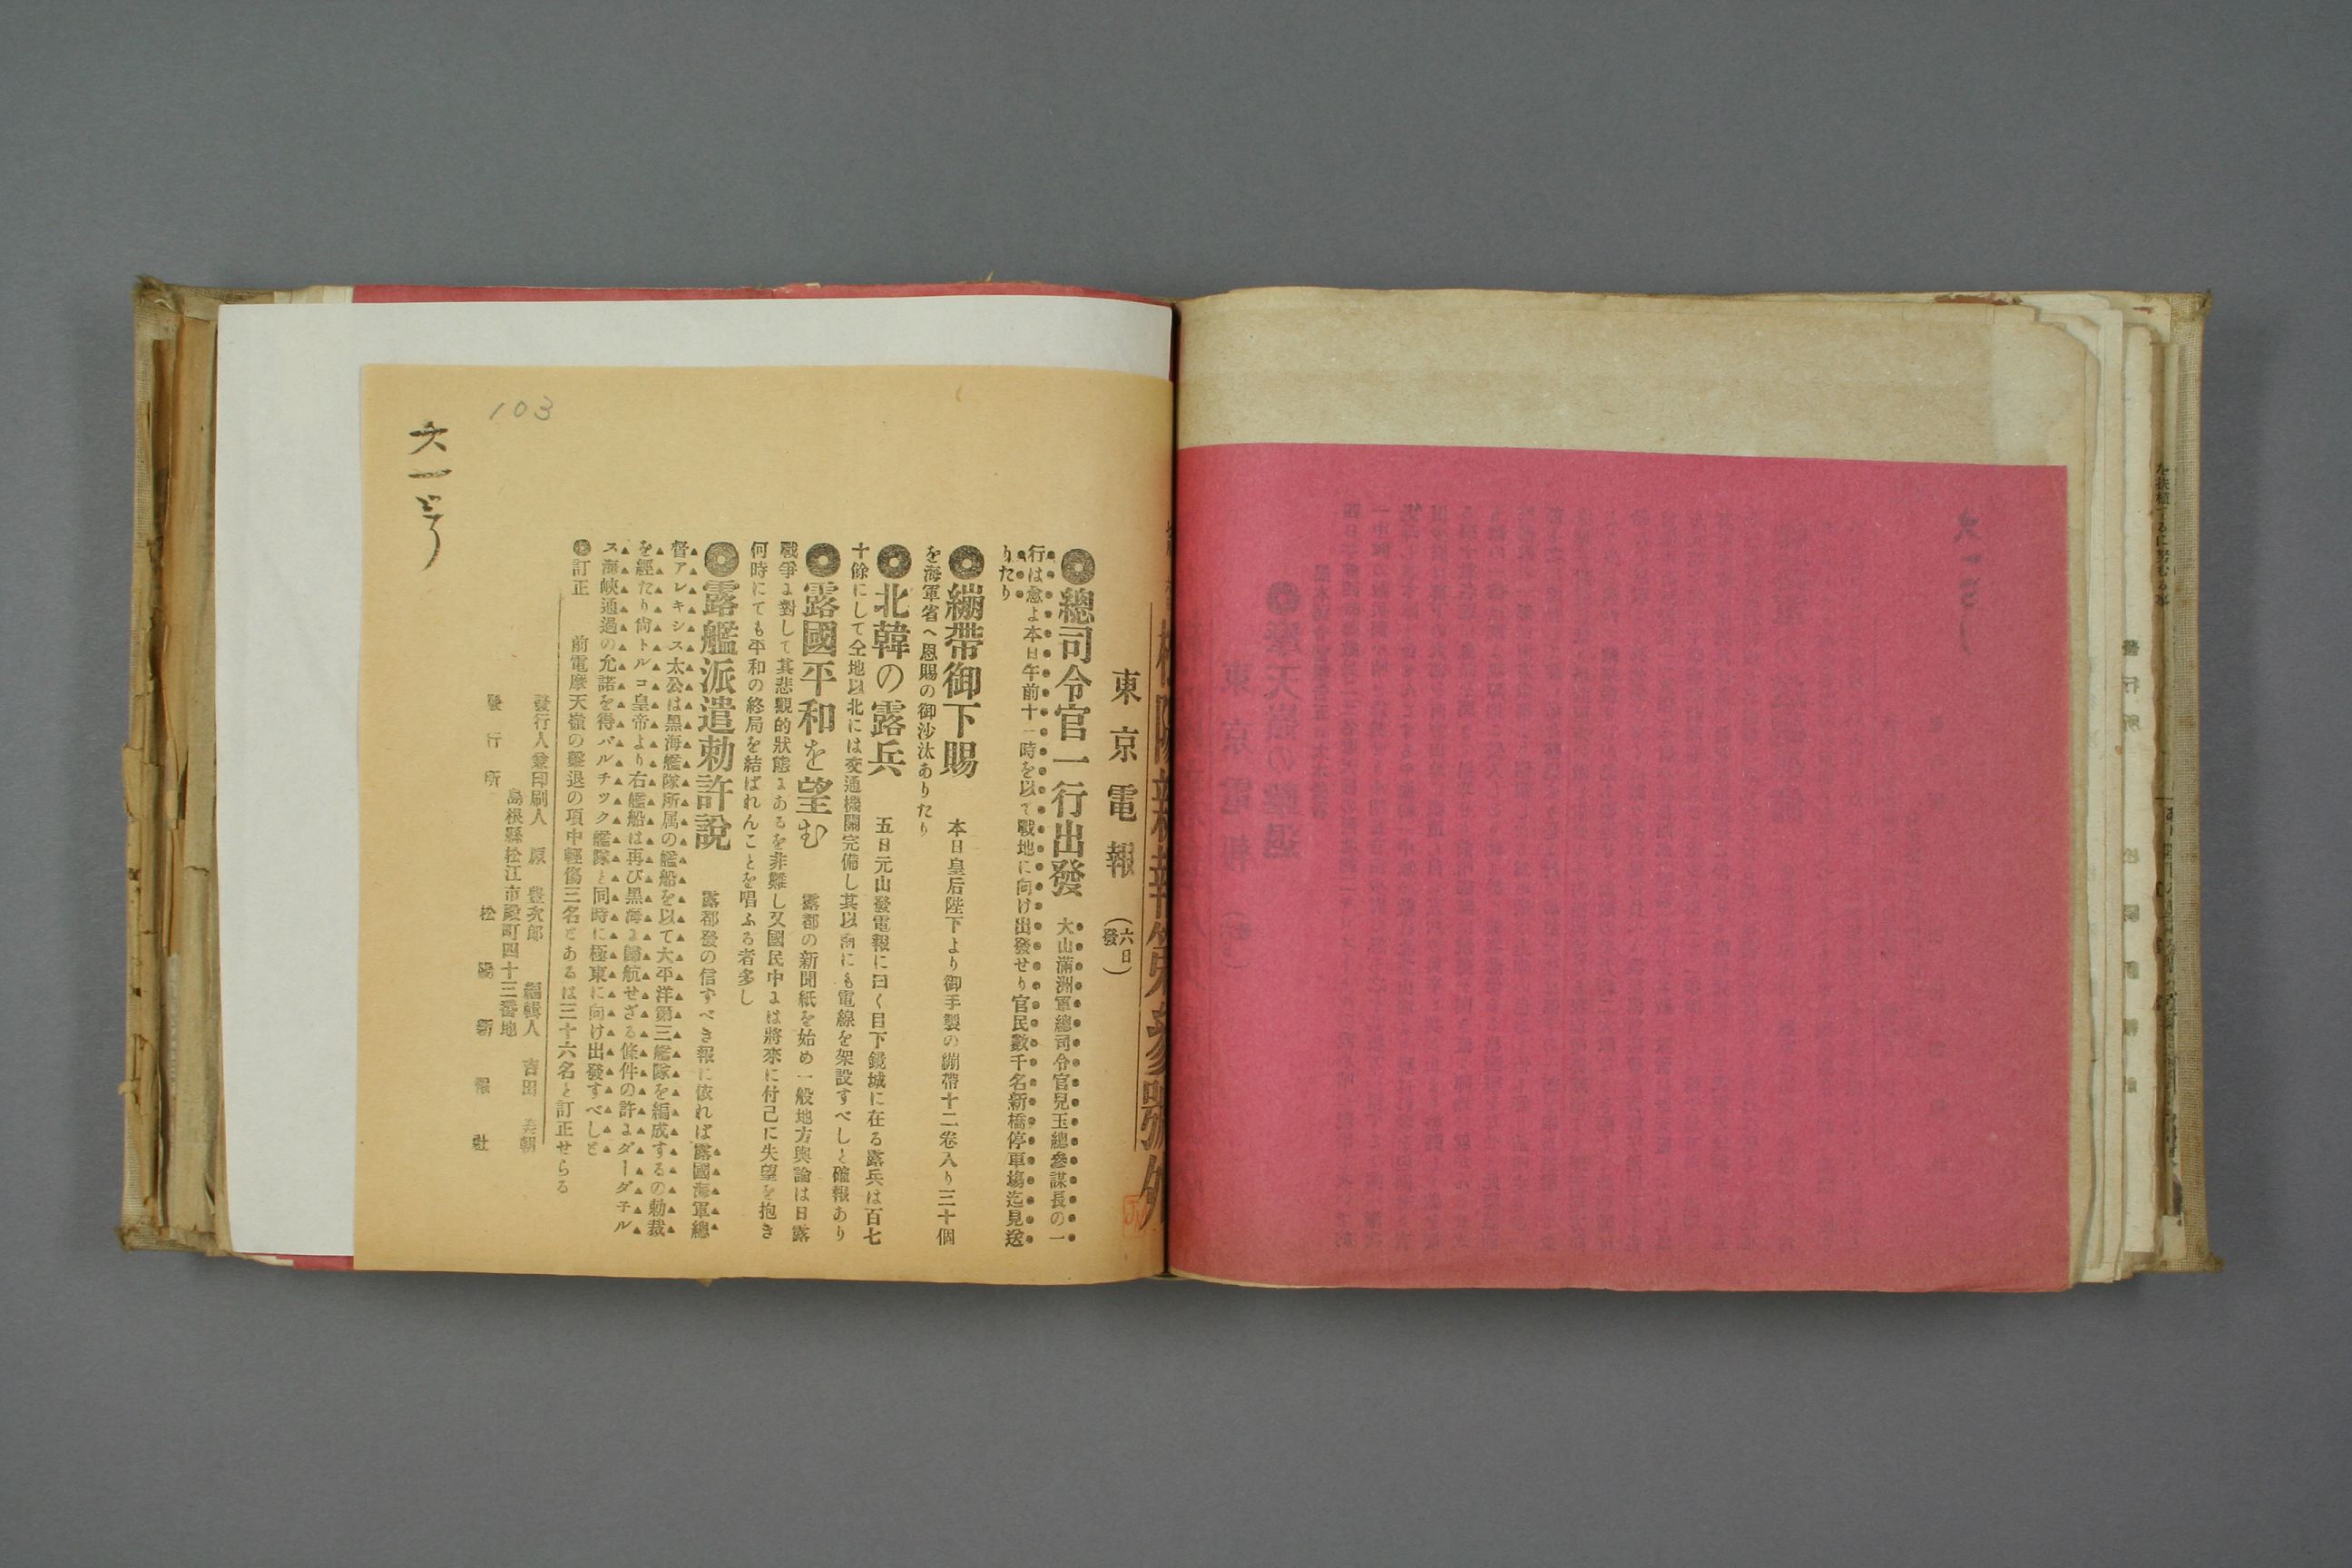 松陽新報第参號外
東京電報（六日發）
◉總司令官一行出發　大山滿洲軍總司令官兒玉總參謀長の一
行は愈よ本日午前十一時を以て戰地に向け出發せり官民數千名新橋停車塲迄見送
りたり
◉繃帶御下賜　本日皇后陛下より御手製の繃帶十二卷入り三十個
を海軍省へ恩賜の御沙汰ありたり
◉北韓の露兵　五日元山發電報に曰く目下鏡城に在る露兵は百七
十餘にして全地以北には交通機關完備し其以南にも電線を架設すべしと確報あり
◉露國平和を望む　露都の新聞紙を始め一般地方輿論は日露
戰爭に對して其悲觀的狀態にあるを非難し又國民中には將來に付己に失望を抱き
何時にても平和の終局を結ばれんことを唱ふる者多し
◉露艦派遣勅許説　露都發の信すべき報に依れば露國海軍總
督アレキシス太公は黑海艦隊所属の艦船を以て太平洋第三艦隊を編成するの勅裁
を經たり尙トルコ皇帝より右艦船は再び黑海に歸航せざる條件の許にダーダネル
ス海峽通過の允諾を得バルチック艦隊と同時に極東に向け出發すべしと
訂正　前電摩天嶺の擊退の項中輕傷三名とあるは三十六名と訂正せらる
發行人兼印刷人　原豊次郎　編輯人　吉田美朝
島根縣松江市殿町四十三番地
發行所　松陽新報社
六一号
103